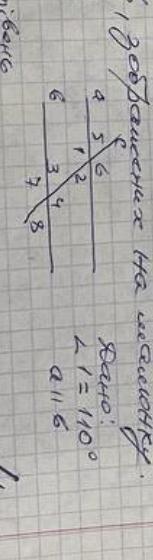 , зображених на малюнку.
a
b
c
5
6
1
2
3
4
7
8
Дано:
∠ 1 = 110°
a || b